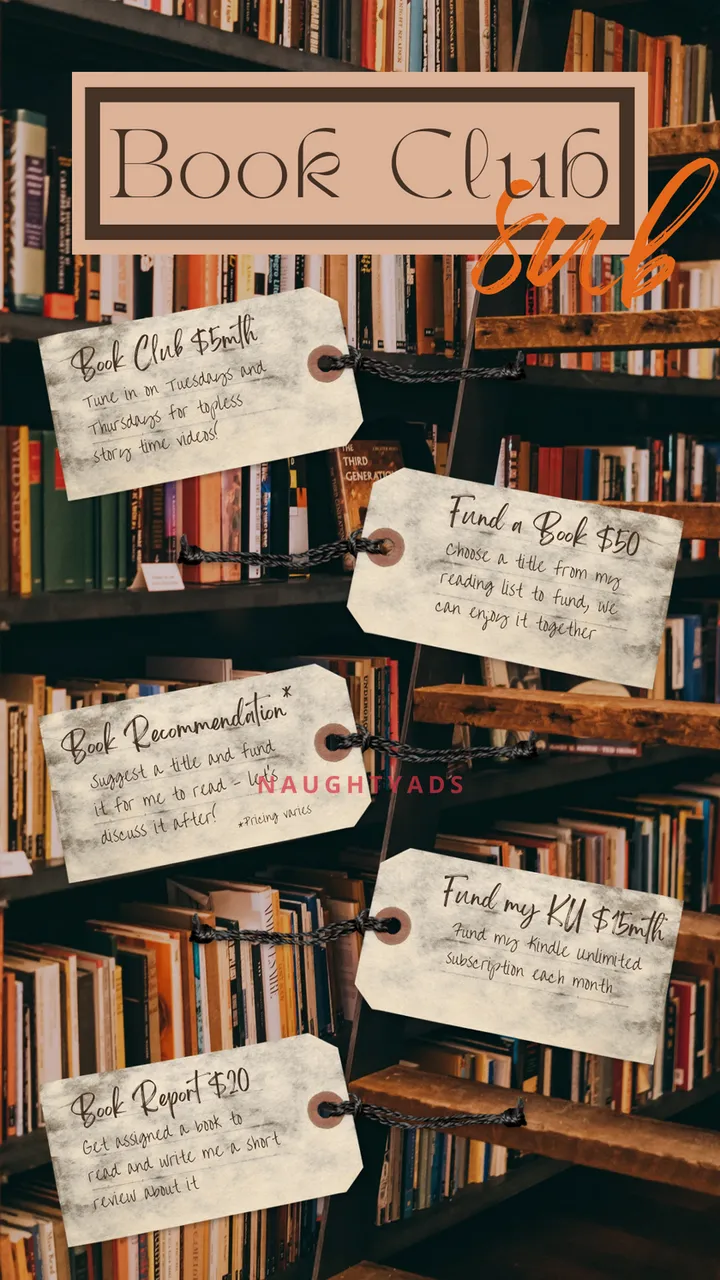 Book Club
sub
Book Club $5mth
Tune in on Tuesdays and
Thursdays for topless
story time videos!
THE
THIRD
GENERATION
Fund a Book $50
Choose a title from my
reading list to fund, we
can enjoy it together
Book Recommendation*
Suggest a title and fund
it for me to read - let's
discuss it after!
*Pricing varies
NAUGHTYADS
Fund my KU $15mth
Fund my Kindle unlimited
subscription each month
Book Report $20
Get assigned a book to
read and write me a short
review about it